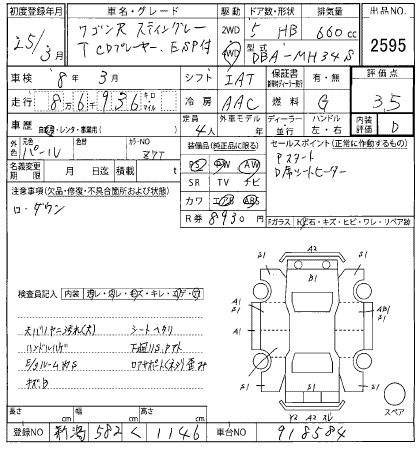 初度登録年月 車名・グレード 駆動 ドア数・形状 排気量 出品NO.
25/3月 ワゴンR スティングレー 2WD 4WD 5 HB 660cc 2595
T CDプレーヤー、ESP付 型式 DBA-MH34S
車検 8年 3月 シフト IAT 保証書 有・無 評価点
走行 8万6千936 キロ マイル 冷房 AAC 燃料 G 3.5
車歴 自家用・レンタ・事業用( ) 定員 4人 外車モデル 年 ディーラー 並行 ハンドル 左・右 内装 D
外色 パール 元色 色替 カラーNO Z7T 装備品(純正品に限る) セールスポイント(正常に作動するもの)
名義変更期限 月 日迄 積載 t PS PW AW Pスタート
SR TV ナビ D席シートヒーター
注意事項(欠品・修復・不具合箇所および状態) カワ エアB ABS
ローダウン R券 8930円
Fガラス 石・キズ・ヒビ・ワレ・リペア跡
検査員記入 内装
天バリヤニ汚れ(大) シートヘタリ
ハンドルハゲ 下廻りS,アト
E/gルームWS
キズB
A2 S1 B1 S1
A1 S1 AB1 S1
S1 S1
S1 S1
Y2 A2 スペア
長さ cm 幅 cm 高さ cm
登録NO 新潟 582 く 1146 車台NO 918584